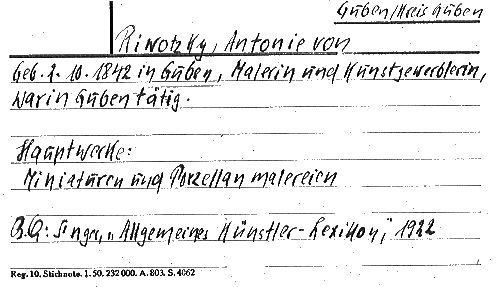 Guben/Kreis Guben
Riwotzky, Antonie von
Geb. 2. 10. 1842 in Guben, Malerin und Kunstgewerblerin,
war in Guben tätig.
Hauptwerke:
Miniaturen und Porzellanmalereien
B.Q: Singer, „Allgemeines Künstler-Lexikon", 1922
Reg. 10. Stichnote. 1. 50. 232 000. A. 803. S. 4062